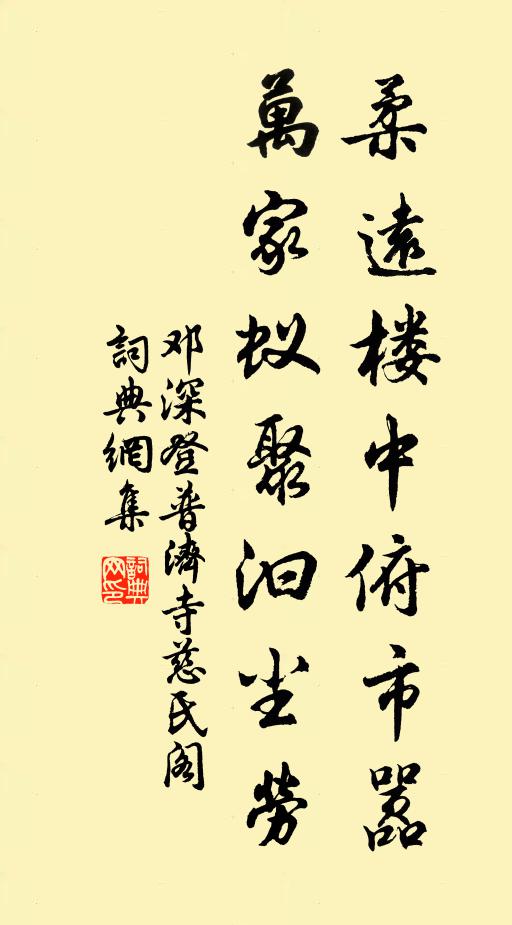 柔遠楼中俯市嚣
萬家蚁聚汩尘勞
邓深登普濟寺慈氏阁
詞典網集
詞典网印